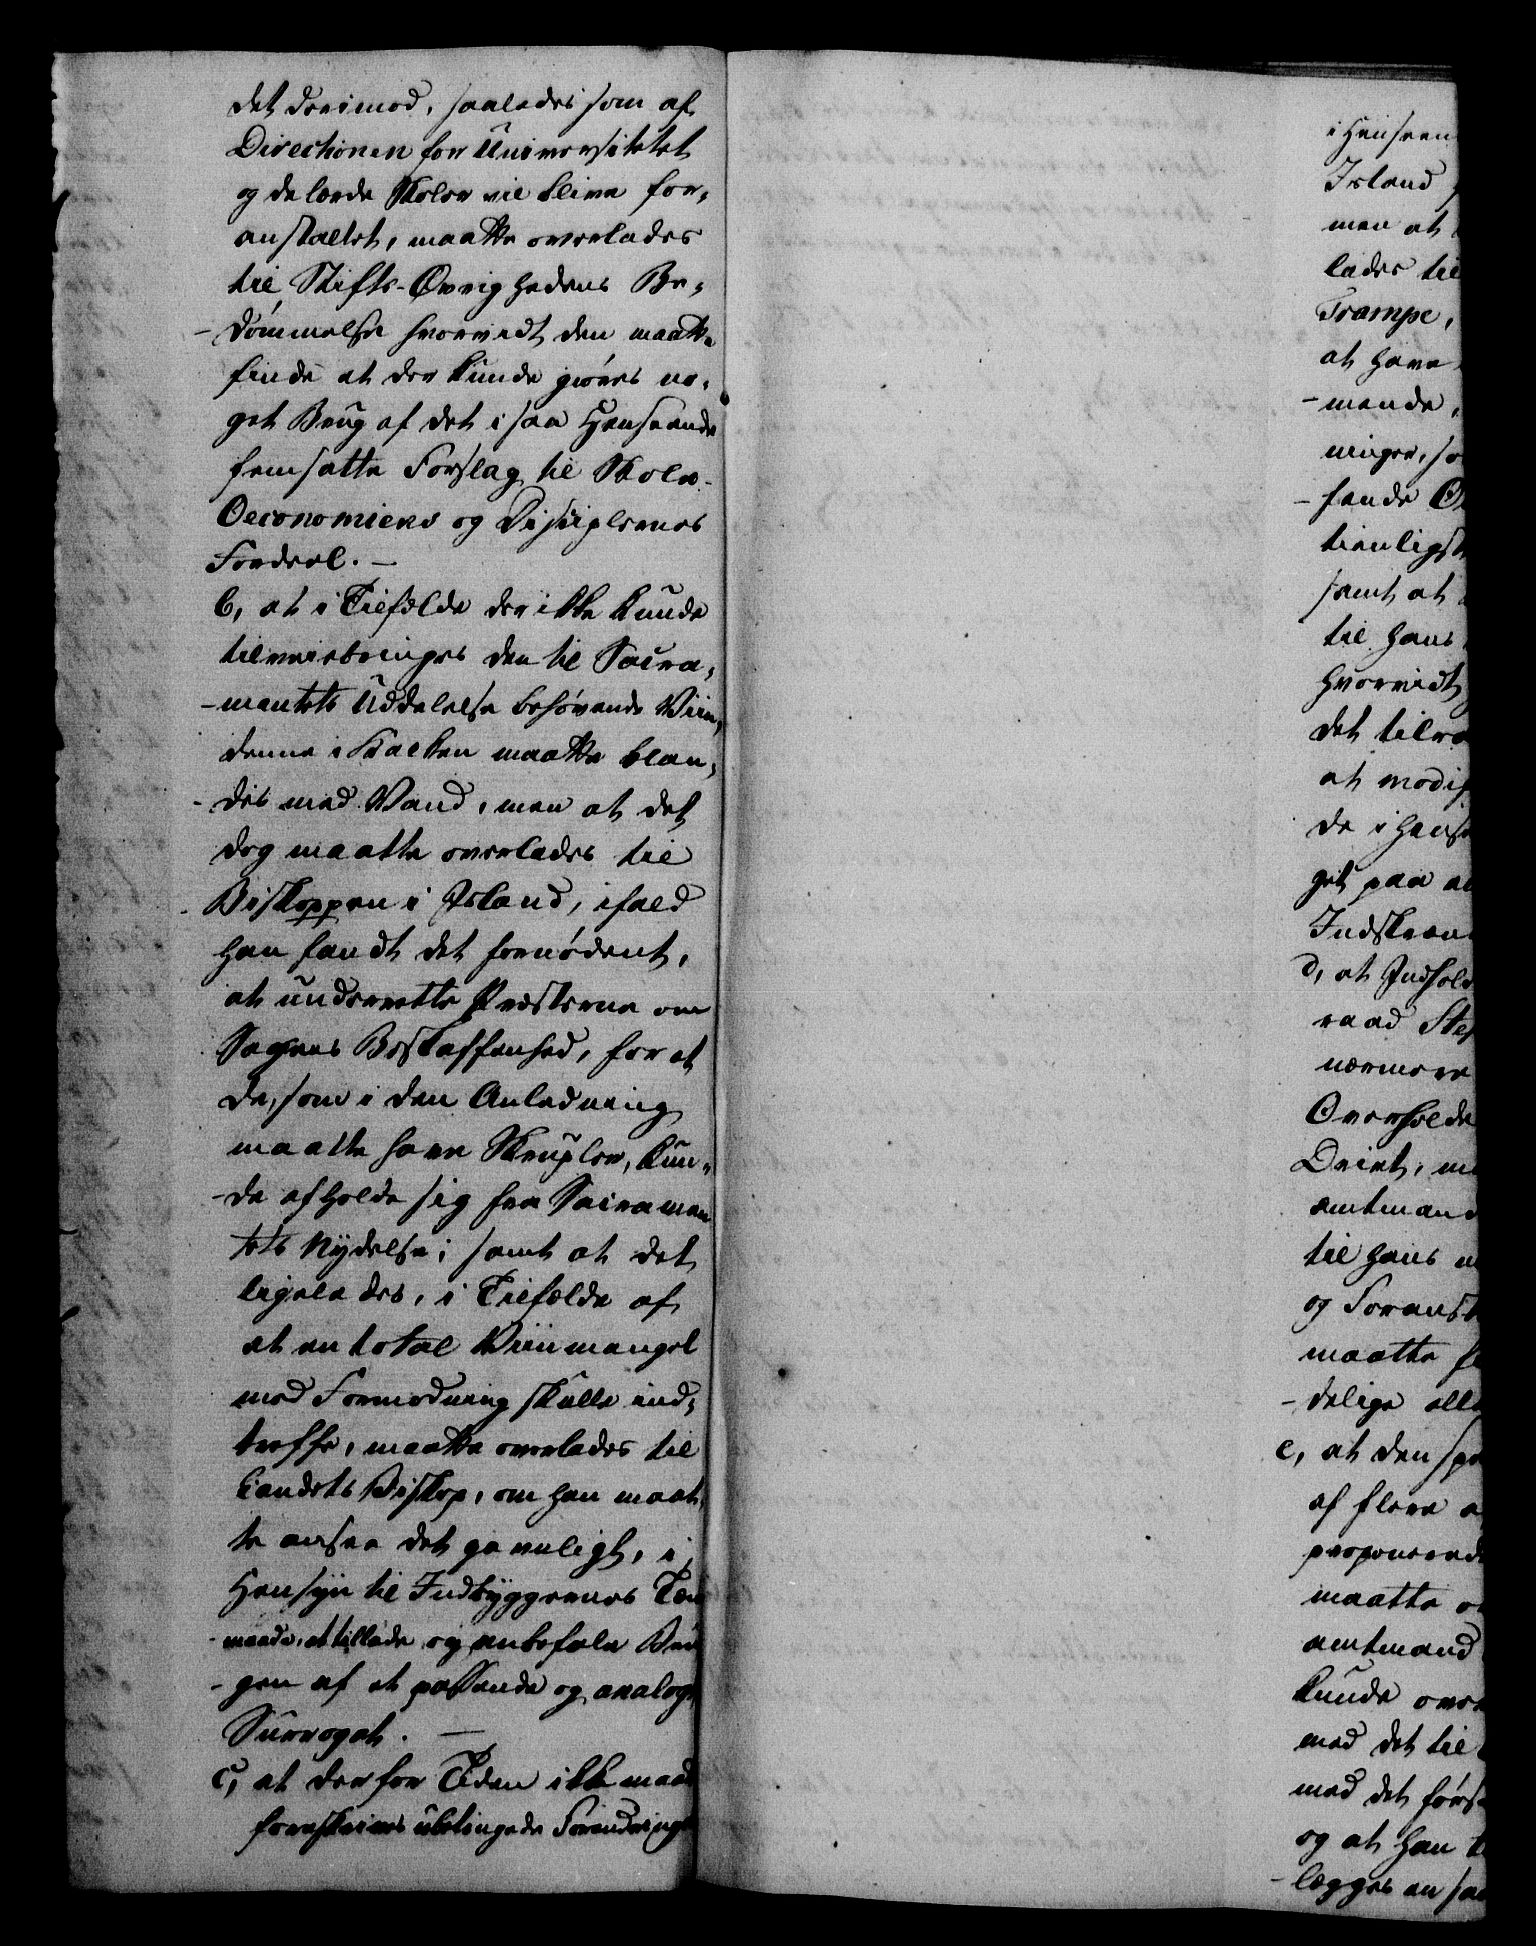 det derimod, saaledes som af
Directionen for Universitetet
og de lærde Skoler vil blive for,
anstaltet, maatte overlades
til Stifts-Øvrighedens Be,
-dømmelse hvorvidt den maatte
finde at der kunde giøres no,
get Brug af det i saa Henseende
fremsatte Forslag til Skole-
Oeconomiens og Disciplenes
Fordeel. —
b, at i Tilfælde der ikke kunde
tilveiebringes den til Sacra,
-mentets Uddelelse behøvende Viin,
denne i Kalken maatte blan,
-des med Vand, men at det
dog maatte overlades til
Biskoppen i Island, ifald
han fandt det fornødent,
at underrette Præsterne om
Sagens Beskaffenhed, for at
de, som i den Anledning
maatte have Skrupler, kun,
-de afholde sig fra Sacramen
tets Nydelse; samt at det
ligeledes, i Tilfælde af
at en total Viinmangel
mod Formodning skulle ind,
træffe, maatte overlades til
Landets Biskop, om han maat,
te ansee det gavnligt, i
Hensyn til Indbyggernes Tænke
-maade, at tillade og anbefale Bru
-gen af et passende og analogt
Surrogat. —
c, at der for Tiden ikke maae
foreskrives ubetingede Forandringer
i Henseen
Island
men at
lades til
Trampe,
at have
-mende,
ninger, so
-fende
tienligst
samt at
til hans
hvorvidt
det tilra
at modif
de i Hense
get paa
Indskræn
d, at Indhold
raad Ste
nærmere
Overholde
Drivt, m
amtmand
til hans
og Foranst
maatte
-delige elle
e, at den
af flere
proponerede
maatte
amtmand
kunde over
med det til
med det først
og at han
-lægges en saa